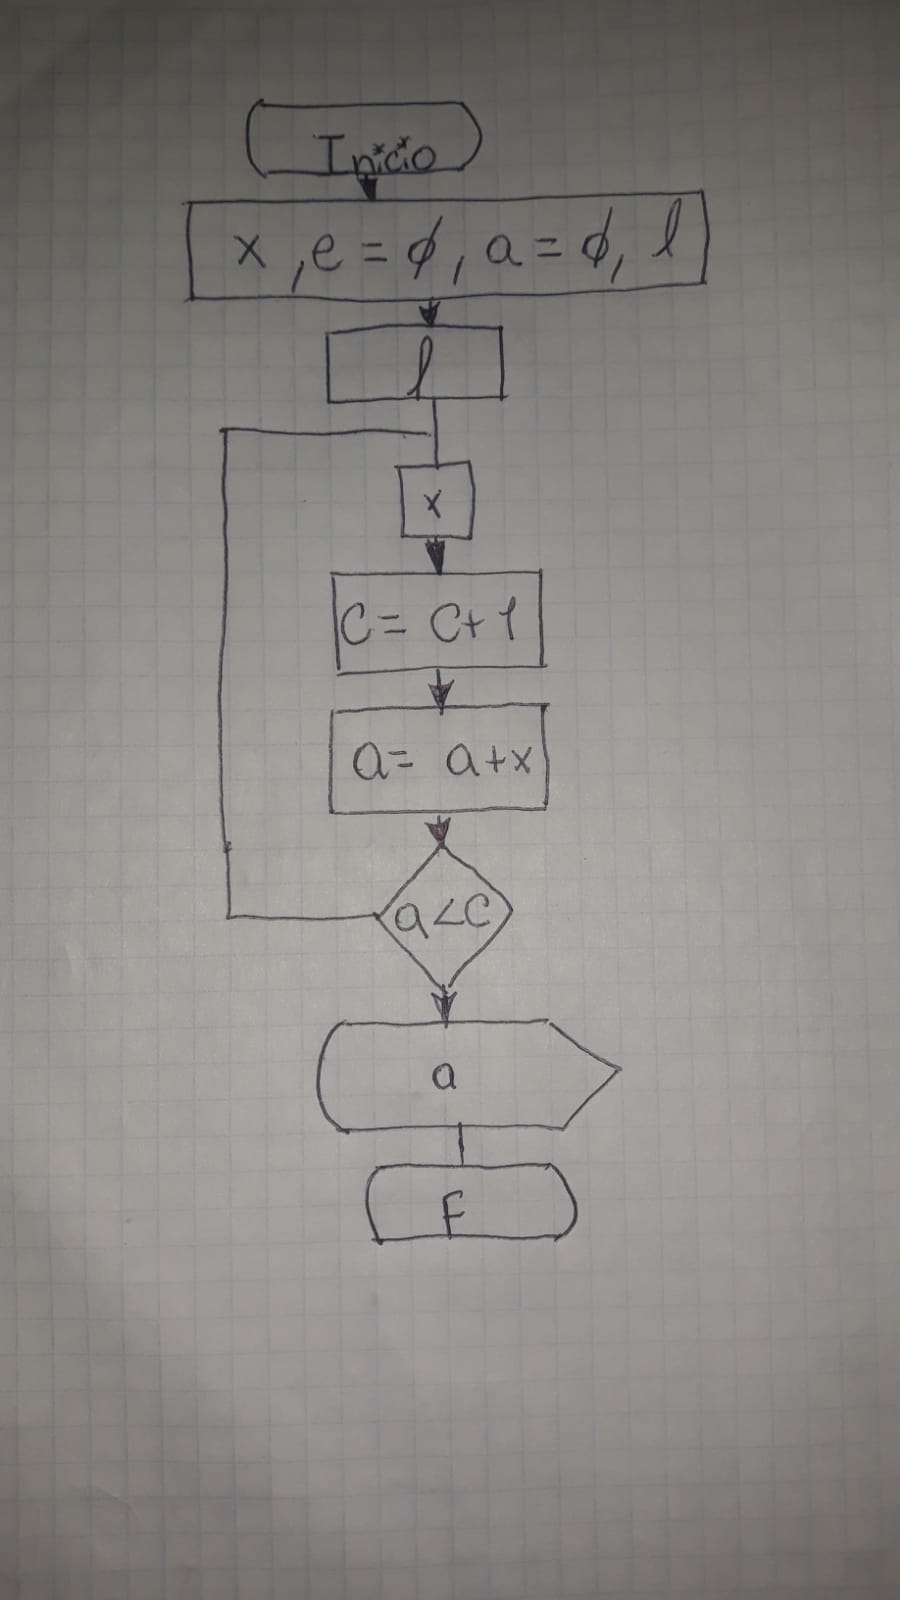 Inicio
x, e = ϕ, a = ϕ, l
l
x
C = C+1
a = a+x
a < C
a
F